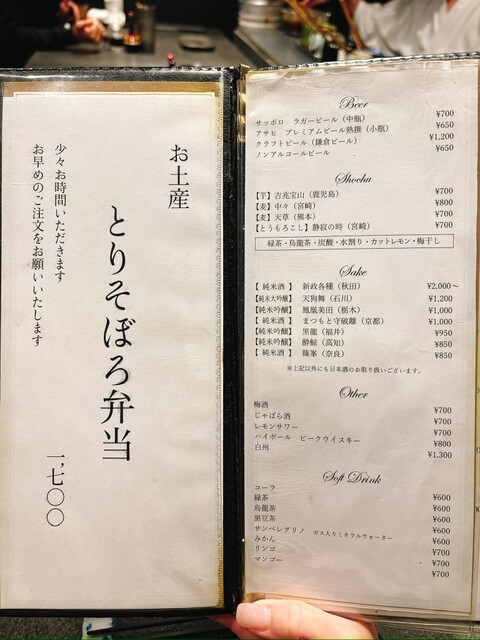 お土産
とりそぼろ弁当
一,七〇〇
少々お時間いただきます
お早めのご注文をお願いいたします
Beer
サッポロ ラガービール（中瓶） ¥700
アサヒ プレミアムビール熟撰（小瓶） ¥650
クラフトビール（鎌倉ビール） ¥1,200
ノンアルコールビール ¥650
Shochu
【芋】吉兆宝山（鹿児島） ¥700
【麦】中々（宮崎） ¥800
【麦】天草（熊本） ¥700
【とうもろこし】静寂の時（宮崎） ¥700
緑茶・烏龍茶・炭酸・水割り・カットレモン・梅干し
Sake
【 純米酒 】 新政各種（秋田） ¥2,000～
【純米大吟醸】 天狗舞（石川） ¥1,200
【純米吟醸】 鳳凰美田（栃木） ¥1,000
【 純米酒 】 まつもと守破離（京都） ¥1,000
【純米吟醸】 黒龍（福井） ¥950
【純米吟醸】 酔鯨（高知） ¥850
【 純米酒 】 篠峯（奈良） ¥850
※上記以外にも日本酒のお取り扱いございます。
Other
梅酒 ¥700
じゃばら酒 ¥700
レモンサワー ¥700
ハイボール ピークウイスキー ¥800
白州 ¥1,300
Soft Drink
コーラ ¥600
緑茶 ¥600
烏龍茶 ¥600
黒豆茶 ¥600
サンペレグリノ ガス入りミネラルウォーター ¥600
みかん ¥700
リンゴ ¥700
マンゴー ¥700